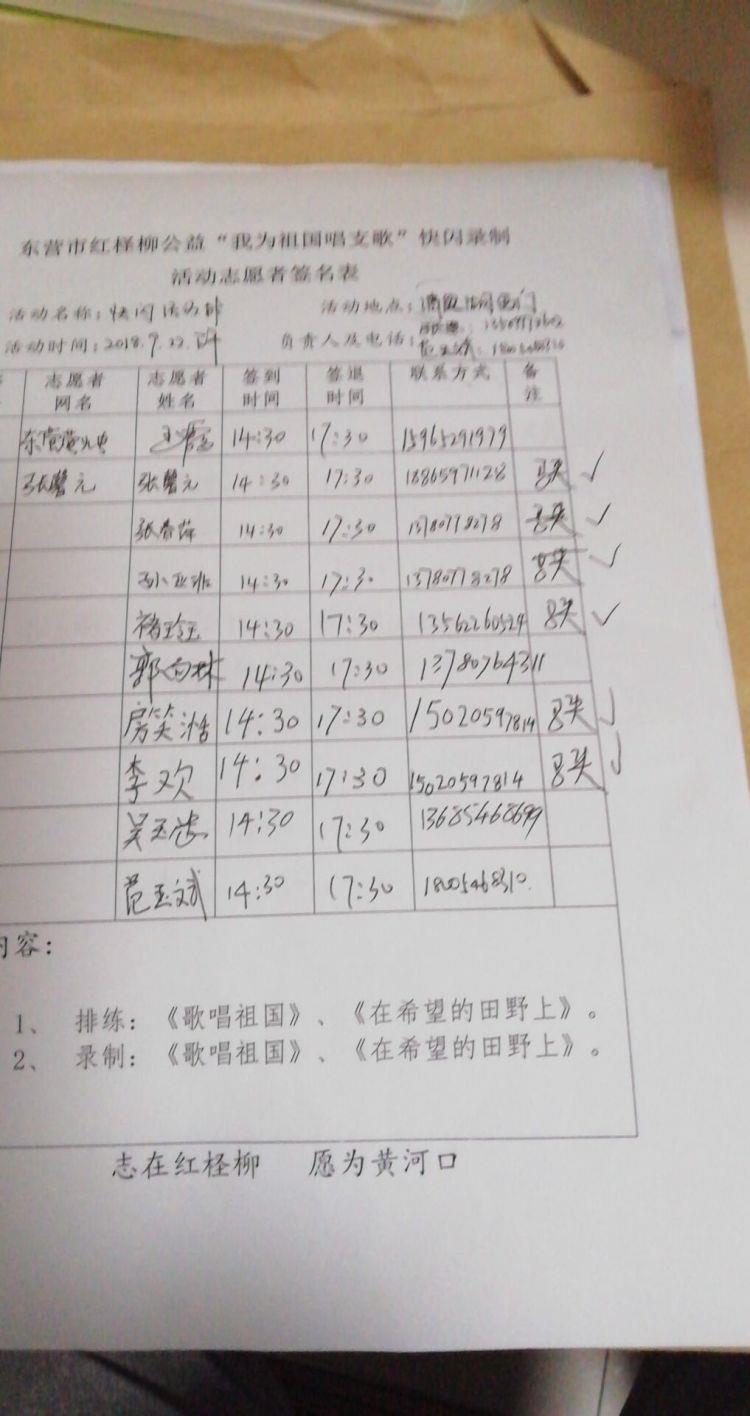 东营市红柽柳公益“我为祖国唱支歌”快闪录制
活动志愿者签名表
活动名称：快闪 活动地点：
活动时间：2018.9.22. 负责人及电话：
志愿者网名 志愿者姓名 签到时间 签退时间 联系方式 备注
14:30 17:30 15965291979
张馨元 张馨元 14:30 17:30 18865971128 ✓
14:30 17:30 13780778278 ✓
14:30 17:30 13780778278 ✓
褚玲玉 14:30 17:30 13562260529 ✓
郭向林 14:30 17:30 13780764311
房笑浩 14:30 17:30 15020597814 ✓
李欢 14:30 17:30 15020597814 ✓
14:30 17:30 13685468699
范玉斌 14:30 17:30 18005468310.
内容：
1、 排练：《歌唱祖国》、《在希望的田野上》。
2、 录制：《歌唱祖国》、《在希望的田野上》。
志在红柽柳 愿为黄河口